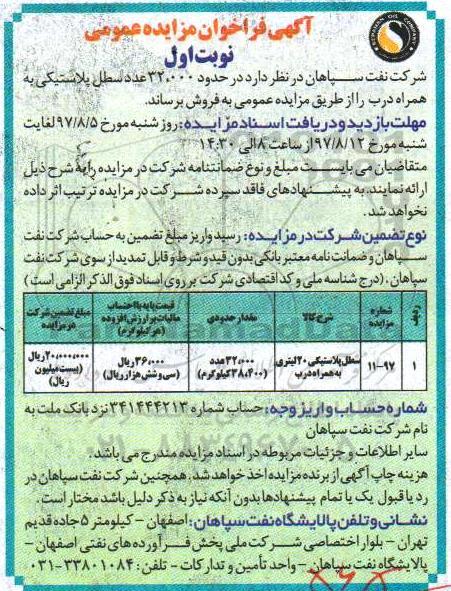 آگهی فراخوان مزایده عمومی
نوبت اول
شرکت نفت سپاهان در نظر دارد در حدود ۳۲،۰۰۰ عدد سطل پلاستیکی به
همراه درب را از طریق مزایده عمومی به فروش برساند.
مهلت بازدید و دریافت اسناد مزایده: روز شنبه مورخ ۹۷/۸/۵ لغایت
شنبه مورخ ۹۷/۸/۱۲ از ساعت ۸ الی ۱۴:۳۰
متقاضیان می بایست مبلغ و نوع ضمانتنامه شرکت در مزایده را به شرح ذیل
ارائه نمایند. به پیشنهادهای فاقد سپرده شرکت در مزایده ترتیب اثر داده
نخواهد شد.
نوع تضمین شرکت در مزایده: رسید واریز مبلغ تضمین به حساب شرکت نفت
سپاهان و ضمانت نامه معتبر بانکی بدون قید و شرط و قابل تمدید از سوی شرکت نفت
سپاهان. (درج شناسه ملی و کد اقتصادی شرکت بر روی اسناد فوق الذکر الزامی است)
ردیف شماره مزایده شرح کالا مقدار حدودی قیمت پایه با احتساب مالیات بر ارزش افزوده (هر کیلوگرم) مبلغ تضمین شرکت در مزایده
۱ ۱۱-۹۷ سطل پلاستیکی ۲۰ لیتری به همراه درب ۳۲،۰۰۰ عدد (۳۸،۴۰۰ کیلوگرم) ۳۶،۰۰۰ ریال (سی و شش هزار ریال) ۲۰،۰۰۰،۰۰۰ ریال (بیست میلیون ریال)
شماره حساب واریز وجه: حساب شماره ۳۴۱۴۴۴۲۱۳ نزد بانک ملت به
نام شرکت نفت سپاهان
سایر اطلاعات و جزئیات مربوطه در اسناد مزایده مندرج می باشد.
هزینه چاپ آگهی از برنده مزایده اخذ خواهد شد. همچنین شرکت نفت سپاهان در
رد یا قبول یک یا تمام پیشنهادها بدون آنکه نیاز به ذکر دلیل باشد مختار است.
نشانی و تلفن پالایشگاه نفت سپاهان: اصفهان - کیلومتر ۵ جاده قدیم
تهران - بلوار اختصاصی شرکت ملی پخش فرآورده های نفتی اصفهان -
پالایشگاه نفت سپاهان - واحد تأمین و تدارکات - تلفن: ۳۳۸۰۱۰۸۴-۰۳۱